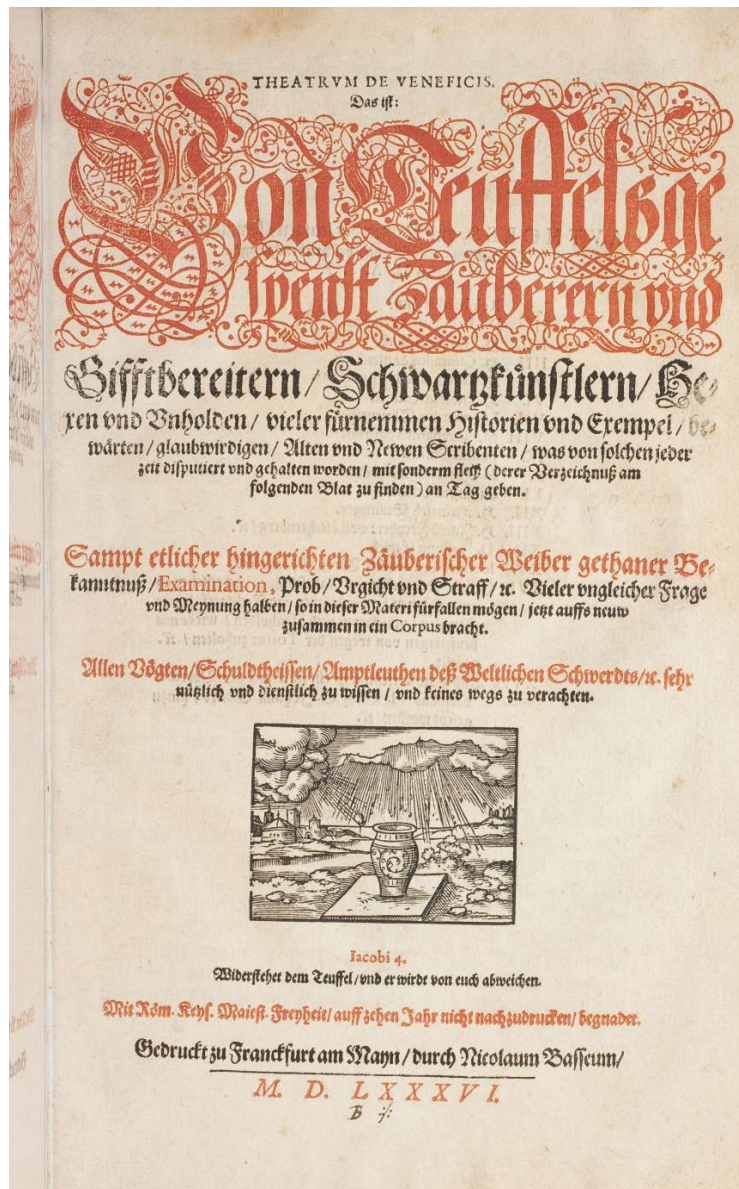 THEATRVM DE VENEFICIS.
Das ist:
Von Teuffelsge
spenst Zauberern vnd
Gifftbereitern / Schwartzkünstlern / He-
xen vnd Vnholden / vieler fürnemmen Historien vnd Exempel / be-
wärten / glaubwirdigen / Alten vnd Newen Scribenten / was von solchen jeder
zeit disputiert vnd gehalten worden / mit sonderm fleiß (derer Verzeichnuß am
folgenden Blat zu finden) an Tag geben.
Sampt etlicher hingerichten Zäuberischer Weiber gethaner Be-
kanntnuß / Examination, Prob / Vrgicht vnd Straff / ꝛc. Vieler vngleicher Frage
vnd Meynung halben / so in dieser Materi fürfallen mögen / jetzt auffs neuw
zusammen in ein Corpus bracht.
Allen Vögten / Schuldtheissen / Amptleuthen deß Weltlichen Schwerdts / ꝛc. sehr
nützlich vnd dienstlich zu wissen / vnd keines wegs zu verachten.
Iacobi 4.
Widerstehet dem Teuffel / vnd er wirdt von euch abweichen.
Mit Röm. Keys. Maiest. Freyheit / auff zehen Jahr nicht nachzudrucken / begnadet.
Gedruckt zu Franckfurt am Mayn / durch Nicolaum Basseum /
M. D. LXXXVI.